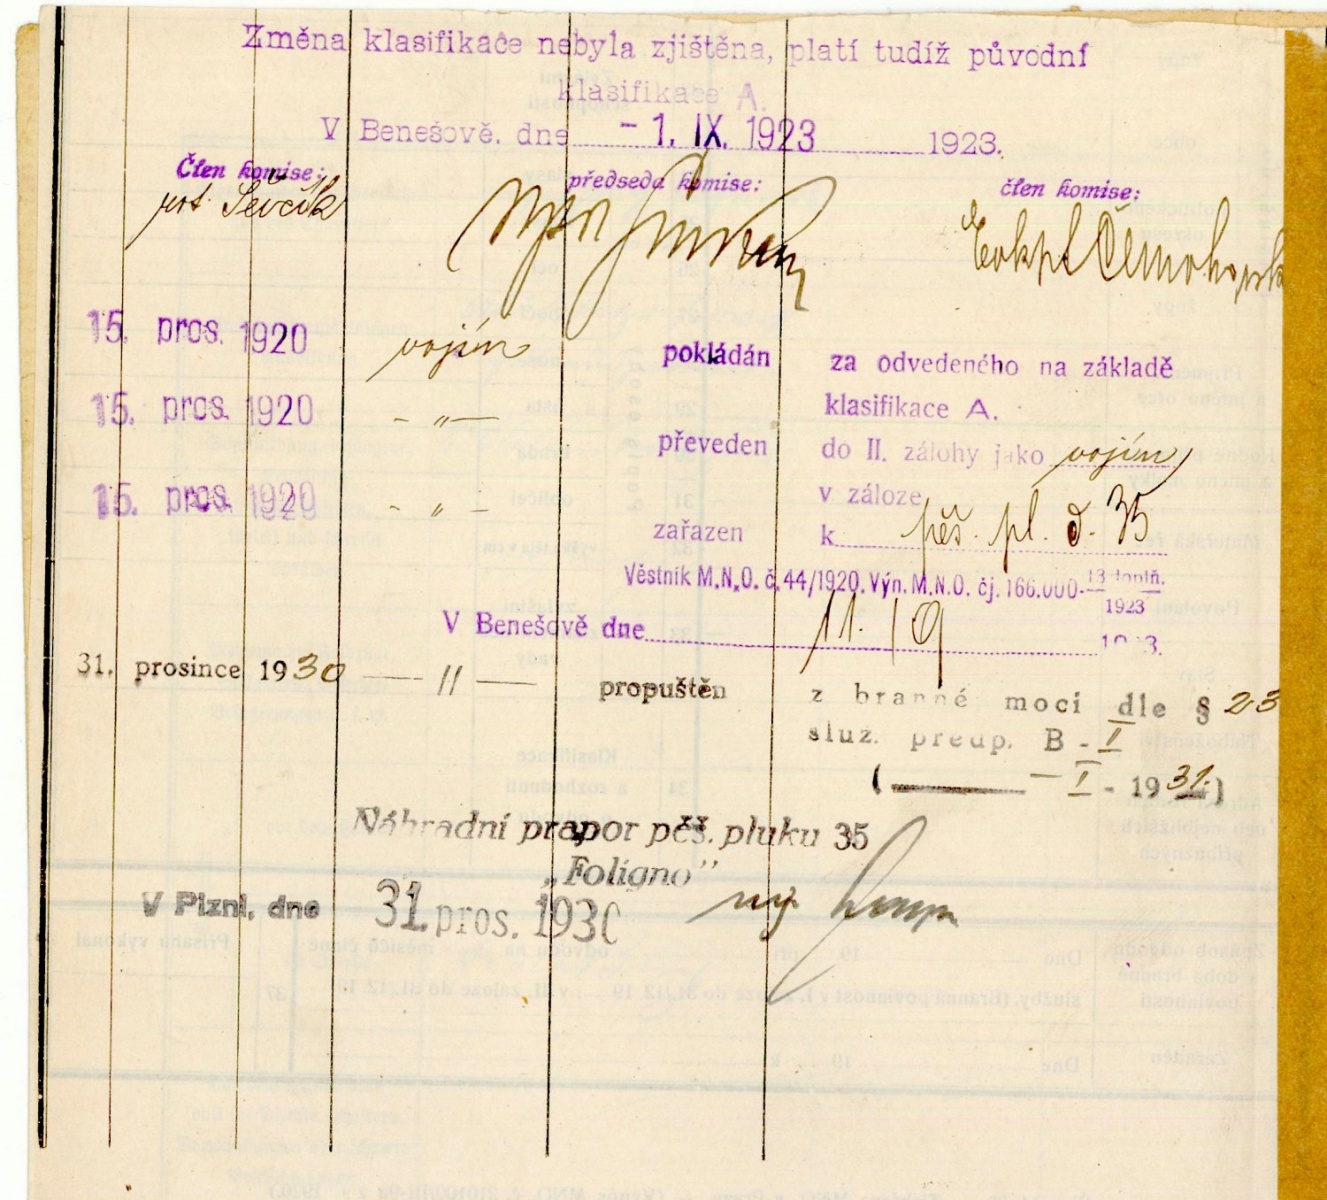 Změna klasifikace nebyla zjištěna, platí tudíž původní
klasifikace A.
V Benešově, dne - 1. IX. 1923 1923.
Člen komise: předseda komise: člen komise:
rot. Ševčík
15. pros. 1920 vojín pokládán za odvedeného na základě
klasifikace A.
15. pros. 1920 - " - převeden do II. zálohy jako vojín
v záloze
15. pros. 1920 - " - zařazen k pěš. pl. č. 35
Věstník M.N.O. č. 44/1920. Výn. M.N.O. čj. 166.000-13 doplň. 1923
V Benešově dne 11./9 1923.
31. prosince 1930 — " — propuštěn z branné moci dle § 23
služ. předp. B - I
( — - I - 1931)
Náhradní prapor pěš. pluku 35
„Foligno"
V Plzni, dne 31. pros. 1930